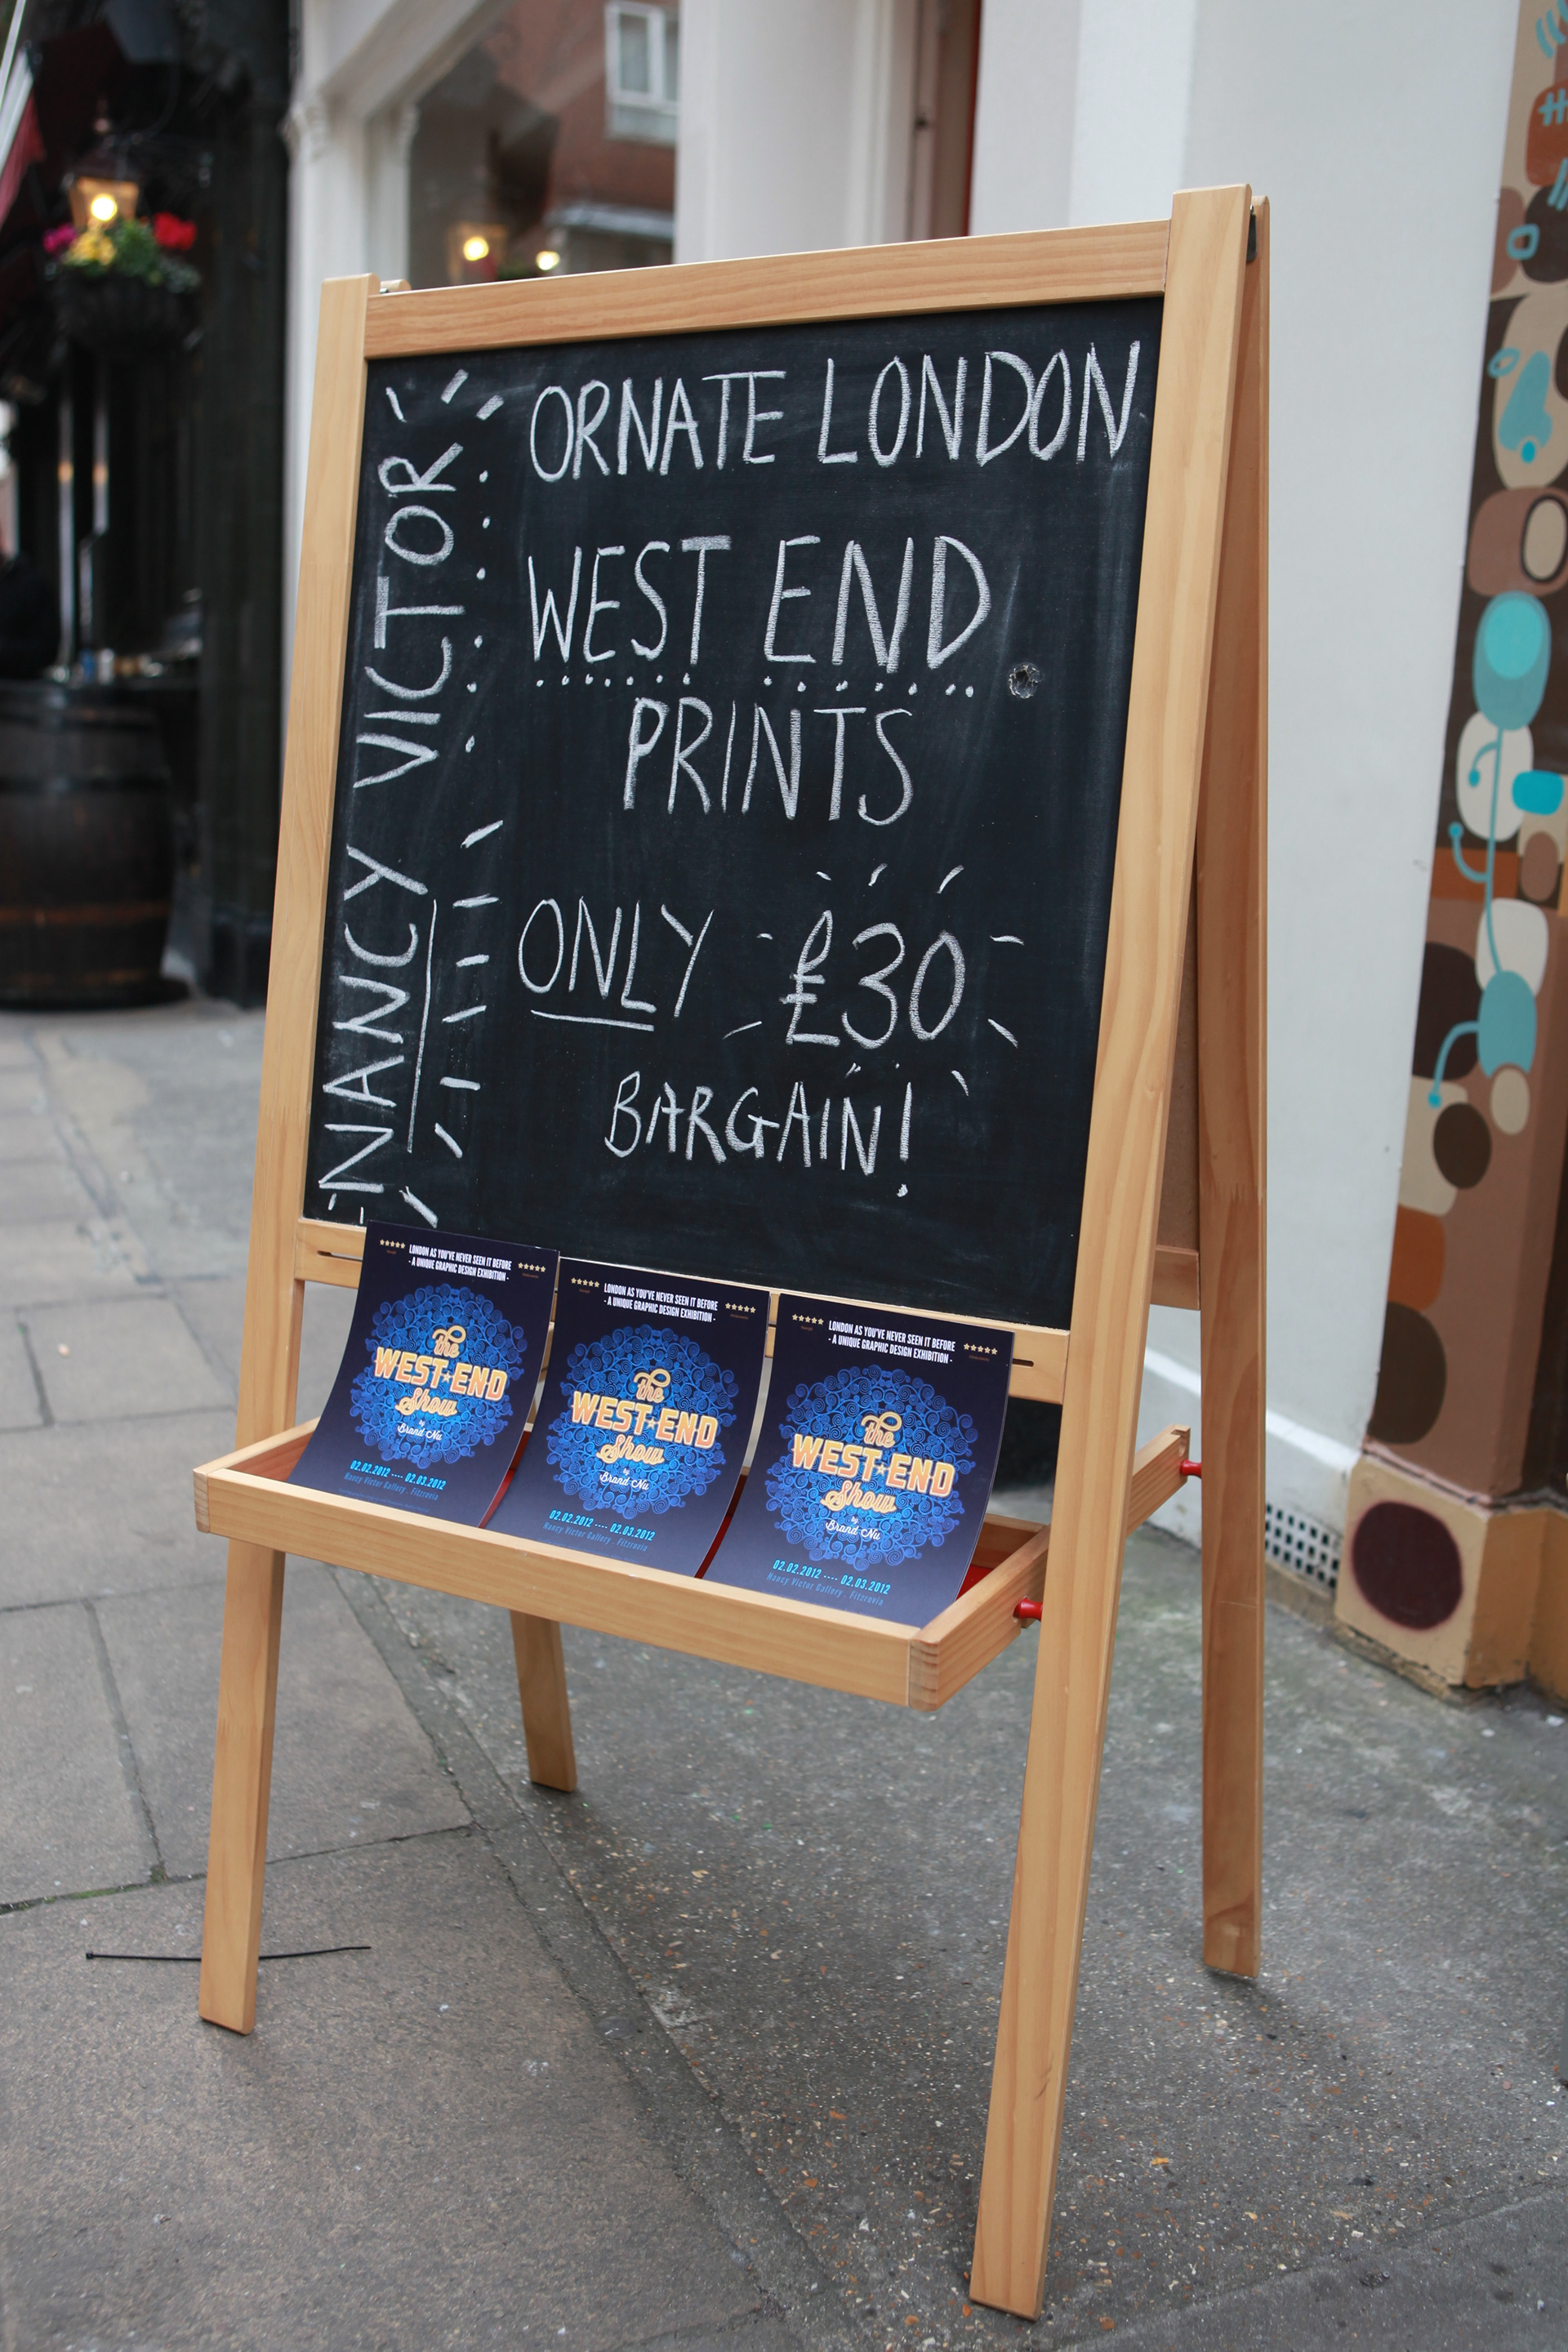 NANCY VICTOR
ORNATE LONDON
WEST END
PRINTS
ONLY £30
BARGAIN!
LONDON AS YOU'VE NEVER SEEN IT BEFORE
- A UNIQUE GRAPHIC DESIGN EXHIBITION -
the
WEST END
Show
by
Brand Nu
02.02.2012 ---- 02.03.2012
Nancy Victor Gallery . Fitzrovia
LONDON AS YOU'VE NEVER SEEN IT BEFORE
- A UNIQUE GRAPHIC DESIGN EXHIBITION -
the
WEST END
Show
by
Brand Nu
02.02.2012 ---- 02.03.2012
Nancy Victor Gallery . Fitzrovia
LONDON AS YOU'VE NEVER SEEN IT BEFORE
- A UNIQUE GRAPHIC DESIGN EXHIBITION -
the
WEST END
Show
by
Brand Nu
02.02.2012 ---- 02.03.2012
Nancy Victor Gallery . Fitzrovia